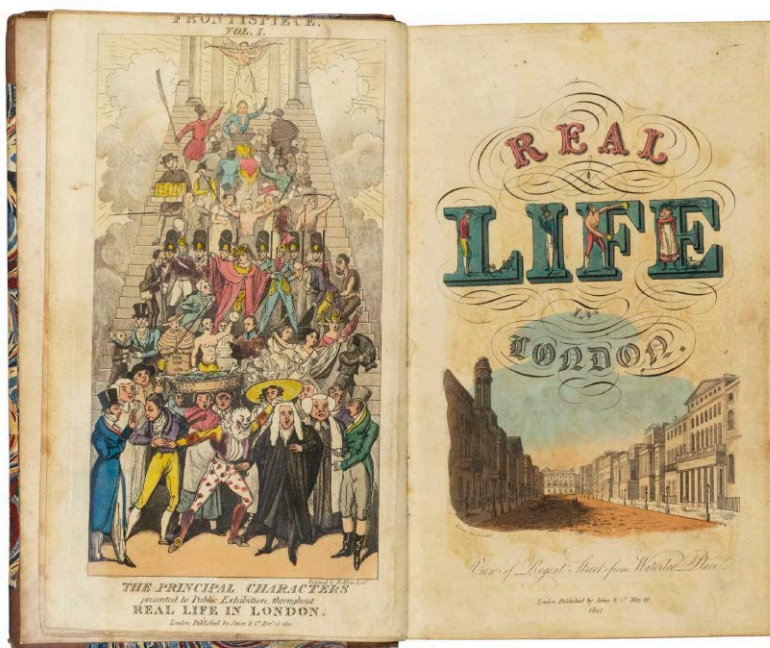 FRONTISPIECE.
VOL. I.
THE PRINCIPAL CHARACTERS
presented to Public Exhibition, throughout
REAL LIFE IN LONDON.
London, Published by Jones & Co.
REAL
LIFE
IN
LONDON.
View of Regent Street from Waterloo Place
London, Published by Jones & Co. May 26.
1821